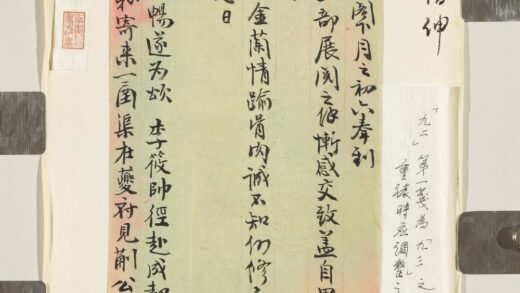 伸
「九二」第一箋為九三之
重裱時應調整
閣下月之初六奉到
部展閱之餘慚感交致蓋自
金蘭情踰骨肉誠不知何修
日
暢遂為欣 李筱帥徑赴成都
寄來一函渠在夔府見荊公